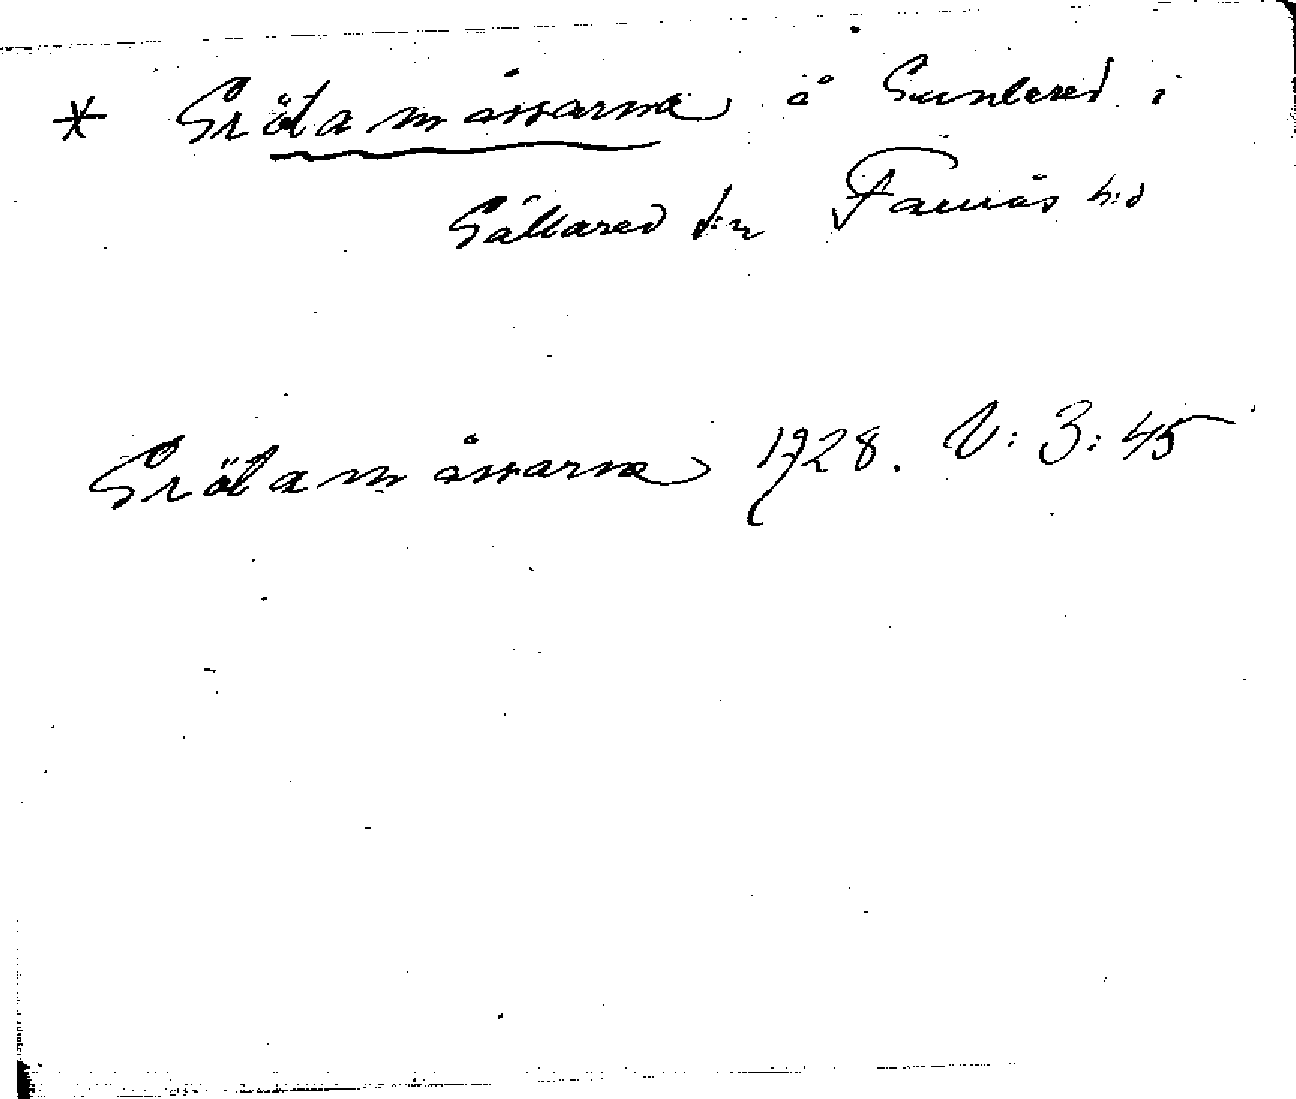 * Grötamåssarna å Gunlered i
Gällared s:n Faurås h:d
Grötamåssarna 1928. V: 3: 45